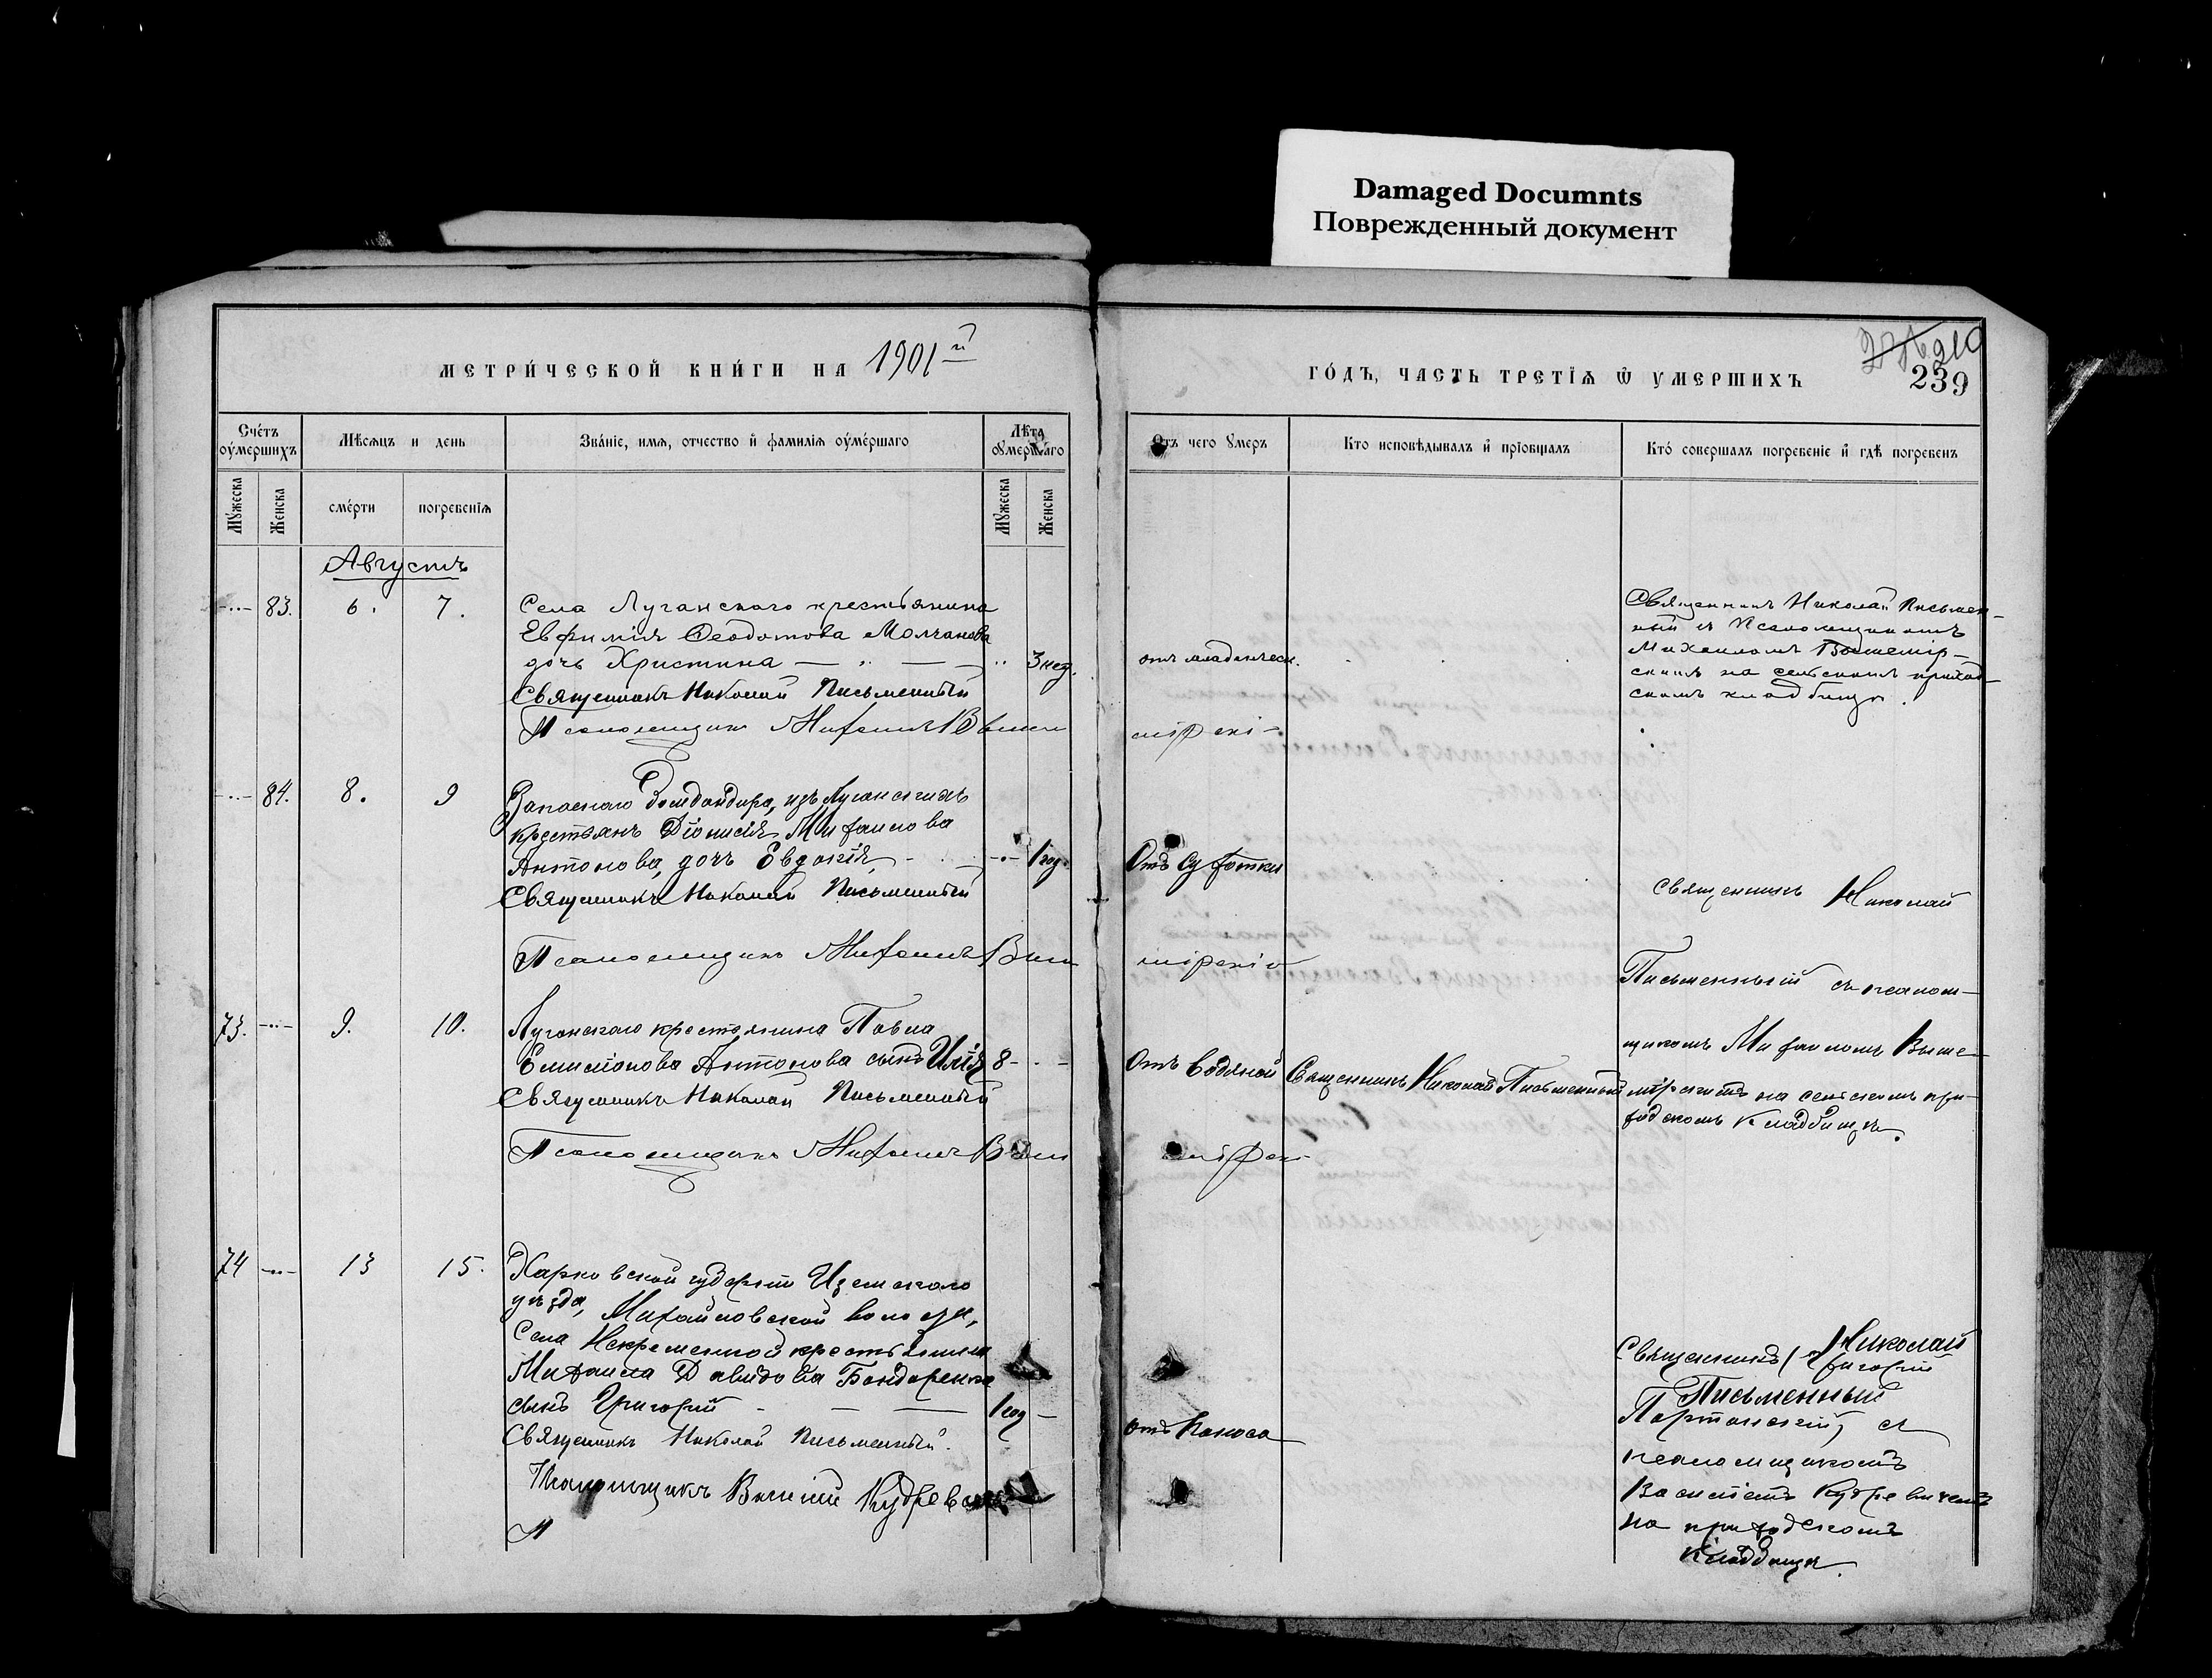 Damaged Documnts
Поврежденный документ
МЕТРИ́ЧЕСКОЙ КНИ́ГИ НА 1901й
ГО́ДЪ, ЧАСТЬ ТРЕТІѦ Ѿ УМЕРШИХЪ
210
239
Сче́тъ оу҆ме́ршихъ
Мѣсѧцъ и день
Зва́ніе, имѧ, отчество и҆ фамиліѧ оу҆ме́ршаго
Лѣта оумершаго
Отъ чего умеръ
Кто исповѣдывалъ и҆ пріобщалъ
Кто́ совершалъ погребеніе и҆ гдѣ погребенъ
Мужеска
Женска
сме́рти
погребеніѧ
Мужеска
Женска
Августъ
83. 6. 7.
Села Луганского крестьянина
Евфимія Ѳеодотова Молчанова
дочь Христина 3 нед.
Священникъ Николай Письменный
Псаломщикъ Михаилъ Вышемірскій
отъ младенческ.
Священникъ Николай Письмен-
ный съ Псаломщикомъ
Михаиломъ Вышемір-
скимъ на сельскомъ приход-
скомъ кладбищѣ.
84. 8. 9
Запаснаго Бомбардира, изъ Луганскихъ
крестьянъ Діонисія Михаилова
Антонова, дочь Евдокія 1 год.
Священникъ Николай Письменный
Псаломщикъ Михаилъ Вышемірскій
Отъ сухотки
Священникъ Николай
Письменный съ псалом-
щикомъ Михаиломъ Выше-
мірскимъ на сельскомъ при-
ходскомъ кладбищѣ.
73. 9. 10.
Луганского крестьянина Павла
Емиліонова Антонова сынъ Илія 8
Священникъ Николай Письменный
Псаломщикъ Михаилъ Вышемірскій
Отъ водяной
Священникъ Николай Письменный
74 13 15.
Харьковской губерніи Изюмского
уѣзда, Михайловской волости,
Села Некременной крестьянина
Михаила Давидова Бондаренка
сынъ Григорій 1 год
Священникъ Николай Письменный.
Псаломщикъ Василій Кудревичъ
отъ поноса
Священникъ (Григорій Николай
Письменный
Портянскій) съ
псаломщикомъ
Василіемъ Кудревичемъ
на приходскомъ
кладбищѣ.